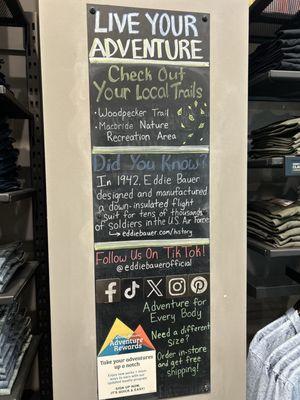 LIVE YOUR
ADVENTURE
Check Out
Your Local Trails
• Woodpecker Trail
• Macbride Nature
Recreation Area
Did You Know?
In 1942, Eddie Bauer
designed and manufactured
a down-insulated flight
suit for tens of thousands
of soldiers in the U.S. Air Force
→ eddiebauer.com/history
Follow Us On TikTok!
@eddiebauerofficial
Adventure for
Every Body
Need a different
Size?
Order in-store
and get free
shipping!
Adventure
Rewards
Take your adventures
up a notch.
IT'S QUICK & EASY!